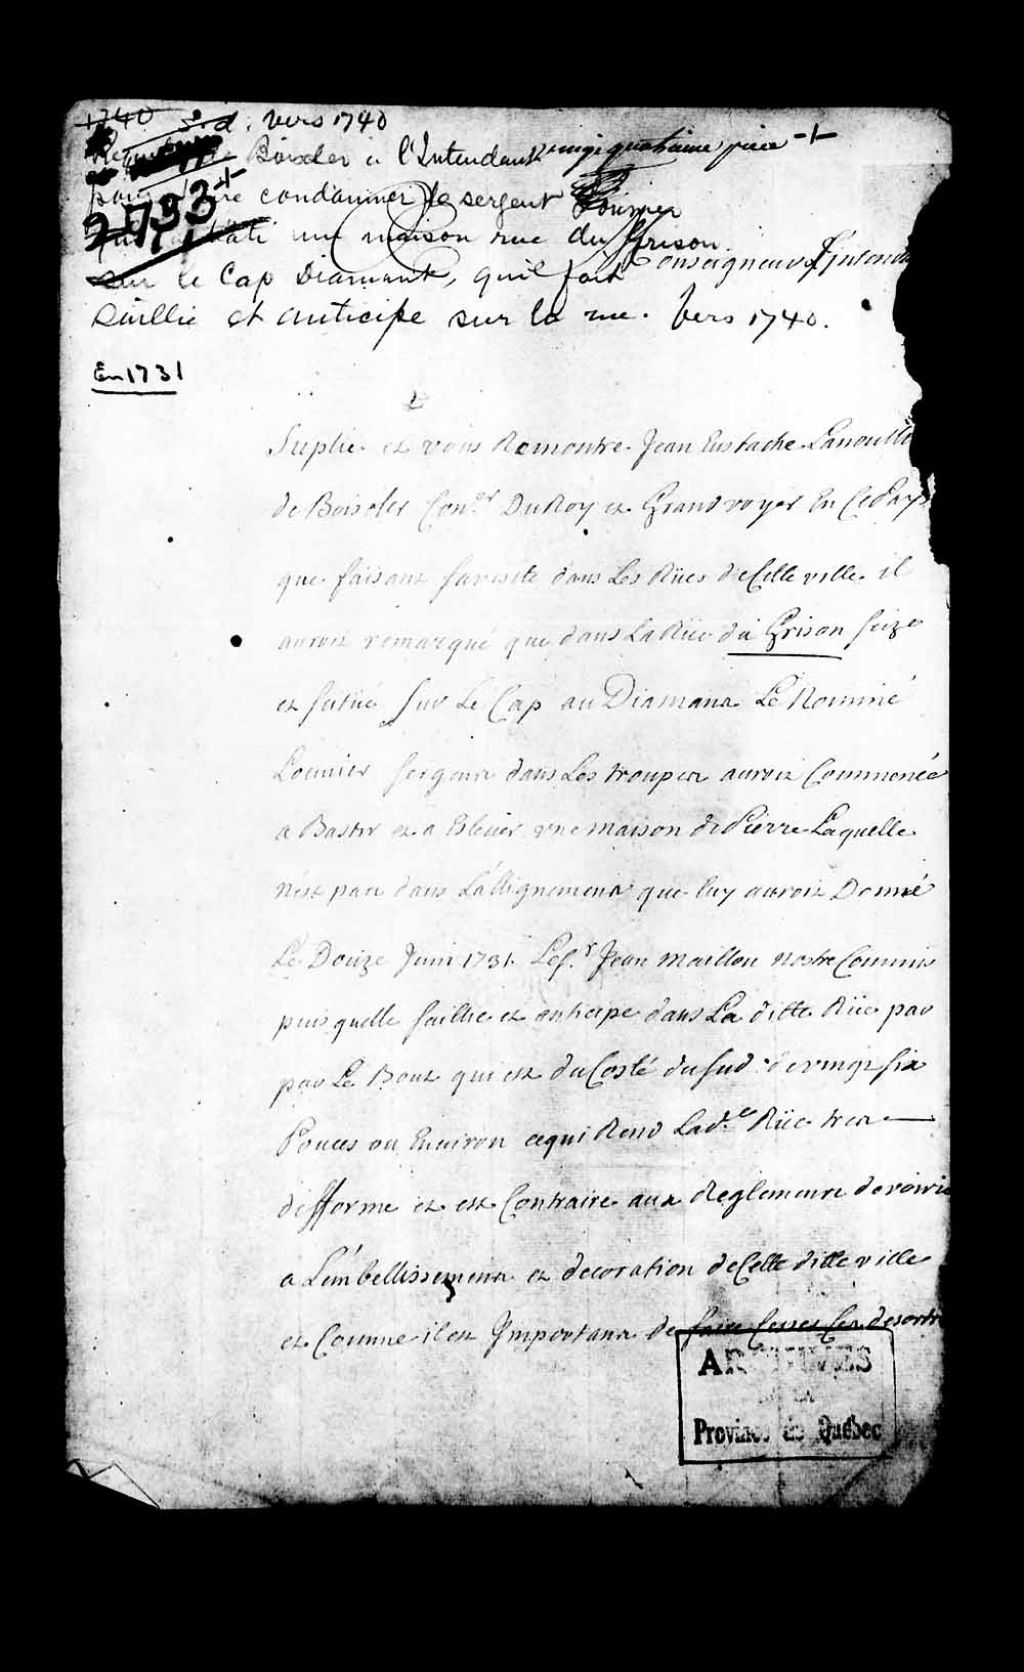 1740 s.d. vers 1740
Boiscler à l'Intendant vingt quatrieme piece +
pour faire condamner le sergent Lounier
2793+
qui a bâti une maison rue du Grison
Monseigneur L'Intenda
sur le Cap Diamant, qu'il fait
saillie et anticipe sur la rue. Vers 1740.
En 1731
Suplie et vous Remontre Jean Eustache Lanoulle
de Boiscler Con.er Du Roy et Grand voyer En Ce Pays
que faisant sa visite dans Les Rües de Cette ville il
auroit remarqué que dans La Rüe du Grison size
et située sur Le Cap au Diamant Le Nommé
Lounier sergent dans Les troupes auroit Commencé
a Bastir et a Eslever une maison de Pierre Laquelle
n'est pas dans L'allignement que luy auroit Donné
Le Douze Juin 1731. Le S.r Jean maillou nostre Commis
puis quelle saillie et anticipe dans La ditte Rüe par
par Le Bout qui est du Costé du sud de vingt six
Pouces ou Environ ce qui Rend Lad.e Rüe tres
difforme et est Contraire aux Reglements de voirie
a L'embellissement et decoration de Cette ditte ville
et Comme il est Important de faire Cesser Ces desordre
ARCHIVES
DE LA
Province de Québec